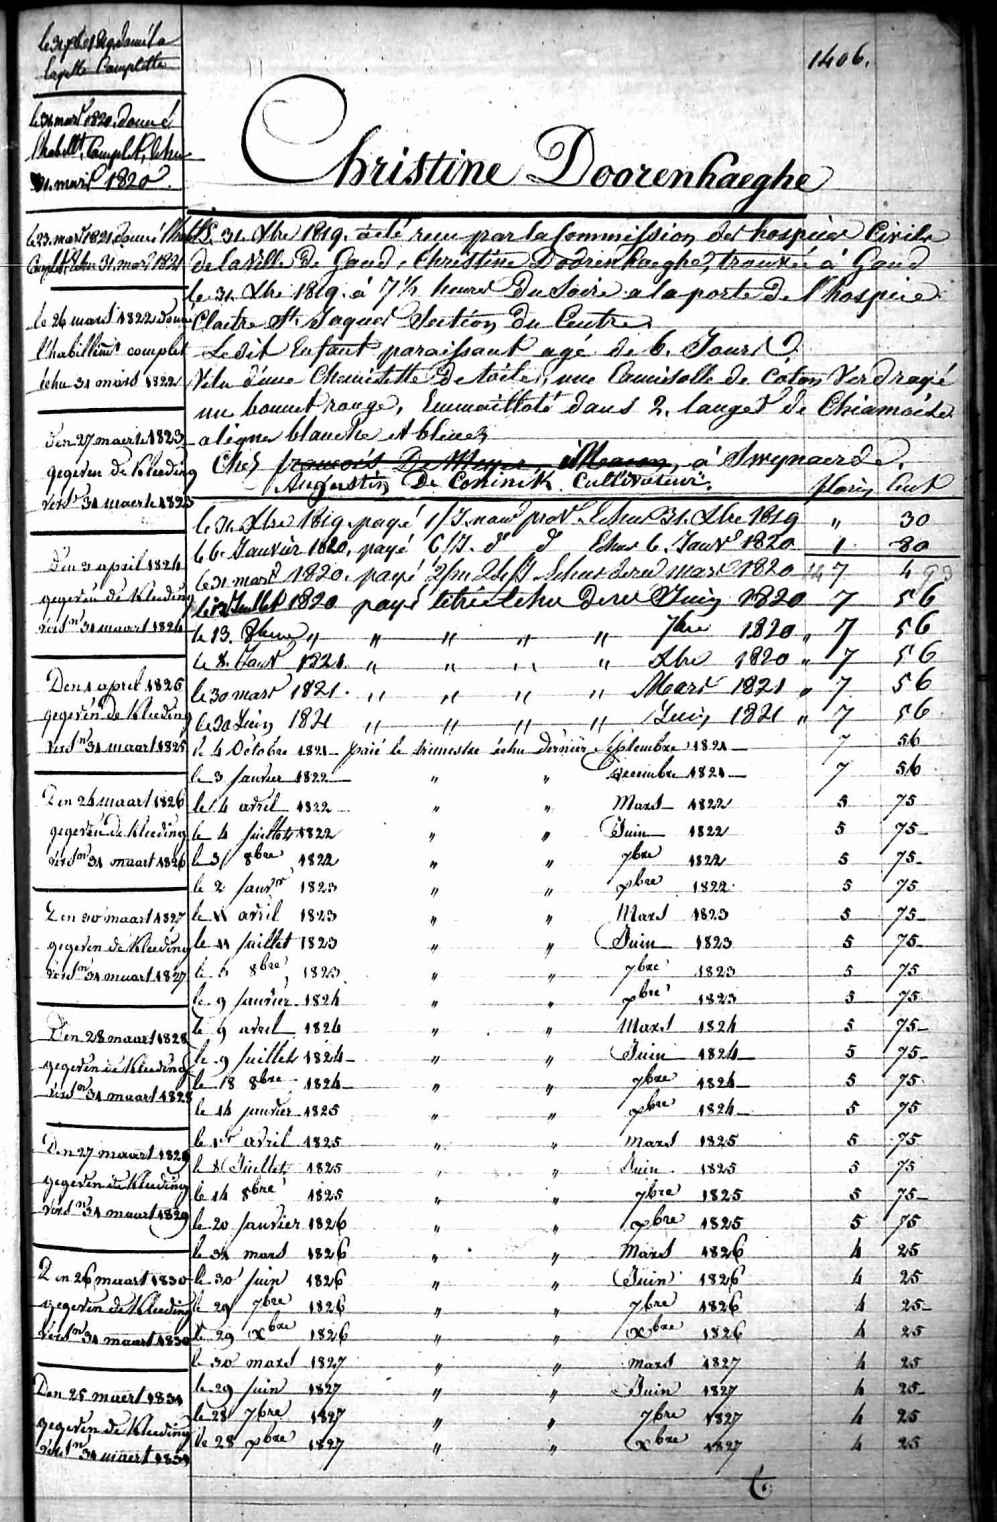 1406.
Christine Doorenhaeghe
le 31 mars 1820. donné
l'habillt. Complet, échu
31. mars 1820.
le 23. mars 1821. donné l'habillt
Complet, échu 31 mars 1821
le 26 mars 1822 donné
l'habillemt complet
échu 31 mars 1822
Den 27 maerte 1823
gegeven de Kleeding
versn 31 maerte 1823
Den 3 april 1824
gegeven de Kleeding
versn 31 maart 1824
Den 1 april 1825
gegeven de Kleeding
versn 31 maart 1825
Den 24 maart 1826
gegeven de Kleeding
versn 31 maart 1826
Den 30 maart 1827
gegeven de Kleeding
versn 31 maart 1827
Den 28 maart 1828
gegeven de Kleeding
versn 31 maart 1828
Den 27 maart 1829
gegeven de Kleeding
versn 31 maart 1829
Den 26 maart 1830
gegeven de Kleeding
versn 31 maart 1830
Den 25 maert 1831
gegeven de Kleeding
versn 31 maert 1831
Le 31. Xbre 1819. a été recu par la Commission des hospices Civils
de la Ville de Gand, Christine Doorenhaeghe, trouvée à Gand
le 31. Xbre 1819. á 7½ heures Du Soire a la porte De l'hospice
St. Jaques Section Du Centre.
Ledit Enfant paraissant agé de 6. Jours
Vetu d'une Chemisette De toile, une Camisolle de Coton Verd rayé
un bonnet rouge, Emmailloté dans 2. langes de Chiamoise
a ligne blanche et bleue
Chez francois De Meyer, Macon, á Swynaerde.
Augustin De Coninck Cultivateur.
florin Cent
le 31 Xbre 1819. payé 1/J. nour prov. Echus 31. Xbre 1819 " 30
le 6. Janvier 1820. payé 6/J. do do Echus 6. Janvr 1820 1 80
le 31 mars 1820. payé 2/m 24/J Echus dere mars 1820 7 4 93
le Juillet 1820 payé le tre echu Dere Juin 1820 7 56
le 13. 8bre " " " " " 7bre 1820 " 7 56
le 8. Janv 1821 " " " " Xbre 1820 " 7 56
le 30 mars 1821. " " " " Mars 1821 " 7 56
le 30 Juin 1821 " " " " Juin 1821 " 7 56
le 4 Octobre 1821 - paié le trimestre échu dernier Septembre 1821 - 7 56
le 3 janvier 1822 - " " Decembre 1821 - 7 56
le 4 avril 1822 " " Mars 1822 5 75
le 4 juillet 1822 " " Juin 1822 5 75
le 31 8bre 1822 " " 7bre 1822 5 75
le 2 janvr 1823 " " xbre 1822 5 75
le 11 avril 1823 " " Mars 1823 5 75
le 11 juillet 1823 " " Juin 1823 5 75
le 5 8bre 1823 " " 7bre 1823 5 75
le 9 janvier 1824 " " xbre 1823 5 75
le 9 avril 1824 " " Mars 1824 5 75
le 9 juillet 1824 - " " Juin 1824 - 5 75
le 18 8bre 1824 " " 7bre 1824 5 75
le 14 janvier 1825 " " xbre 1824 5 75
le 1er avril 1825 " " mars 1825 5 75
le 8 Juillet 1825 " " Juin 1825 5 75
le 14 8bre 1825 " " 7bre 1825 5 75
le 20 janvier 1826 " " xbre 1825 5 75
le 31 mars 1826 " " Mars 1826 4 25
le 30 juin 1826 " " Juin 1826 4 25
le 29 7bre 1826 " " 7bre 1826 4 25
le 29 xbre 1826 " " xbre 1826 4 25
le 30 mars 1827 " " mars 1827 4 25
le 29 juin 1827 " " Juin 1827 4 25
le 28 7bre 1827 " " 7bre 1827 4 25
le 28 xbre 1827 " " xbre 1827 4 25